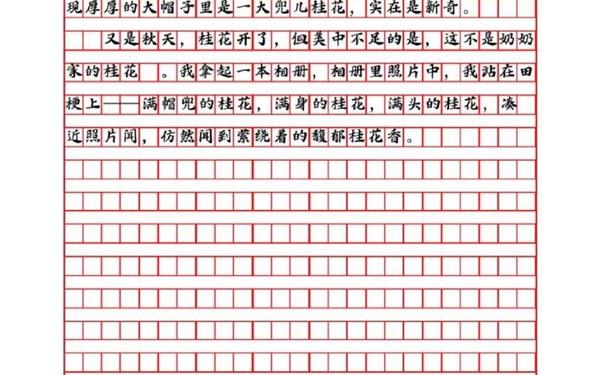 现厚厚的大帽子里是一大兜儿桂花，实在是新奇。
又是秋天，桂花开了，但美中不足的是，这不是奶奶
家的桂花 。我拿起一本相册，相册里照片中，我站在田
梗上——满帽兜的桂花，满身的桂花，满头的桂花，凑
近照片闻，仿然闻到萦绕着的馥郁桂花香。